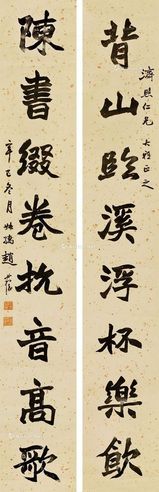 背山臨溪浮杯樂飲
濟熙仁兄大雅正之
陳書綴卷抗音高歌
辛巳冬月